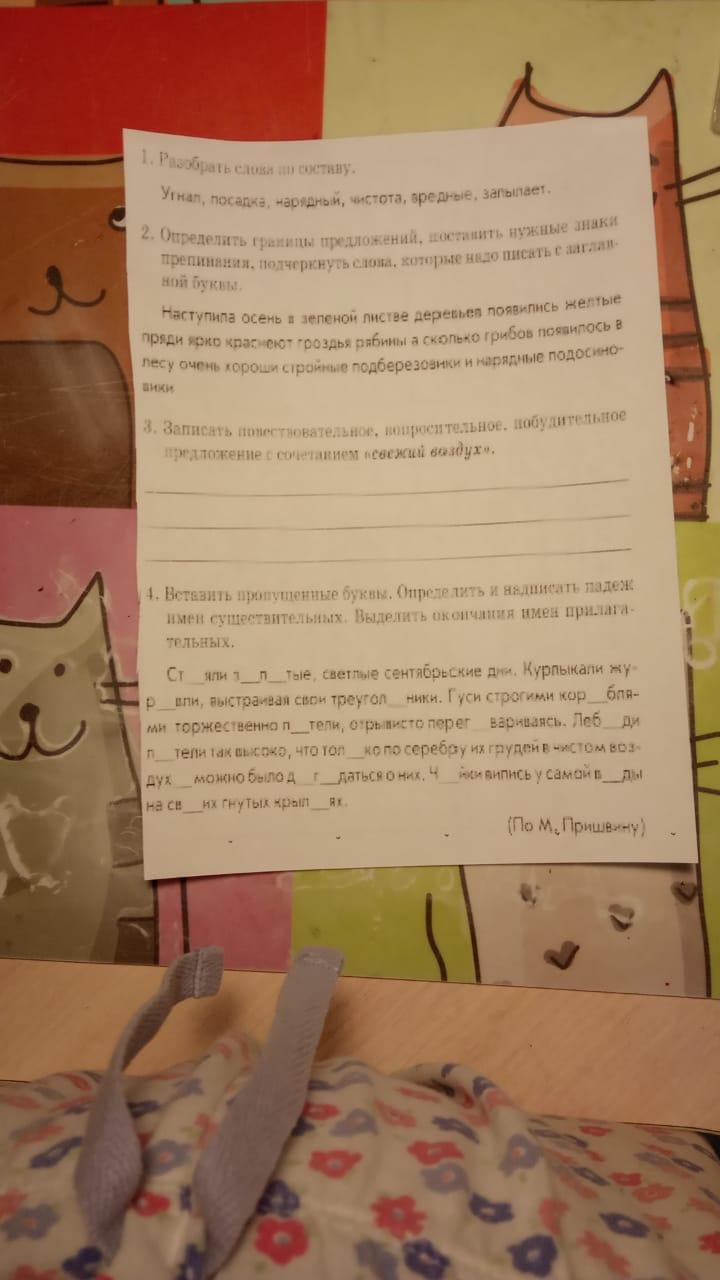 1. Разобрать слова по составу.
Угнал, посадка, нарядный, чистота, вредные, запылает.
2. Определить границы предложений, поставить нужные знаки
препинания, подчеркнуть слова, которые надо писать с заглав-
ной буквы.
Наступила осень в зеленой листве деревьев появились желтые
пряди ярко краснеют гроздья рябины а сколько грибов появилось в
лесу очень хороши стройные подберезовики и нарядные подосино-
вики
3. Записать повествовательное, вопросительное, побудительное
предложение с сочетанием «свежий воздух».
4. Вставить пропущенные буквы. Определить и надписать падеж
имен существительных. Выделить окончания имен прилага-
тельных.
Ст__яли з__л__тые, светлые сентябрьские дни. Курлыкали жу-
р__вли, выстраивая свои треугол__ники. Гуси строгими кор__бля-
ми торжественно л__тели, отрывисто перег__вариваясь. Леб__ди
л__тели так высоко, что тол__ко по серебру их грудей в чистом воз-
дух__ можно было д__г__даться о них. Ч__йки вились у самой в__ды
на св__их гнутых крыл__ях.
(По М. Пришвину)